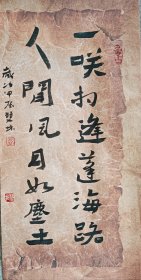 一咲相逢蓬海路
人間風月如塵土
歲次甲辰